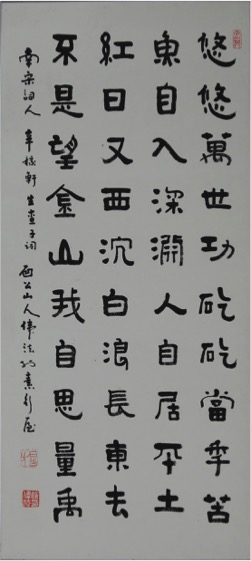 悠悠萬世功矻矻當年苦
魚自入深淵人自居平土
紅日又西沉白浪長東去
不是望金山我自思量禹
南宋詞人辛稼軒生查子词山人